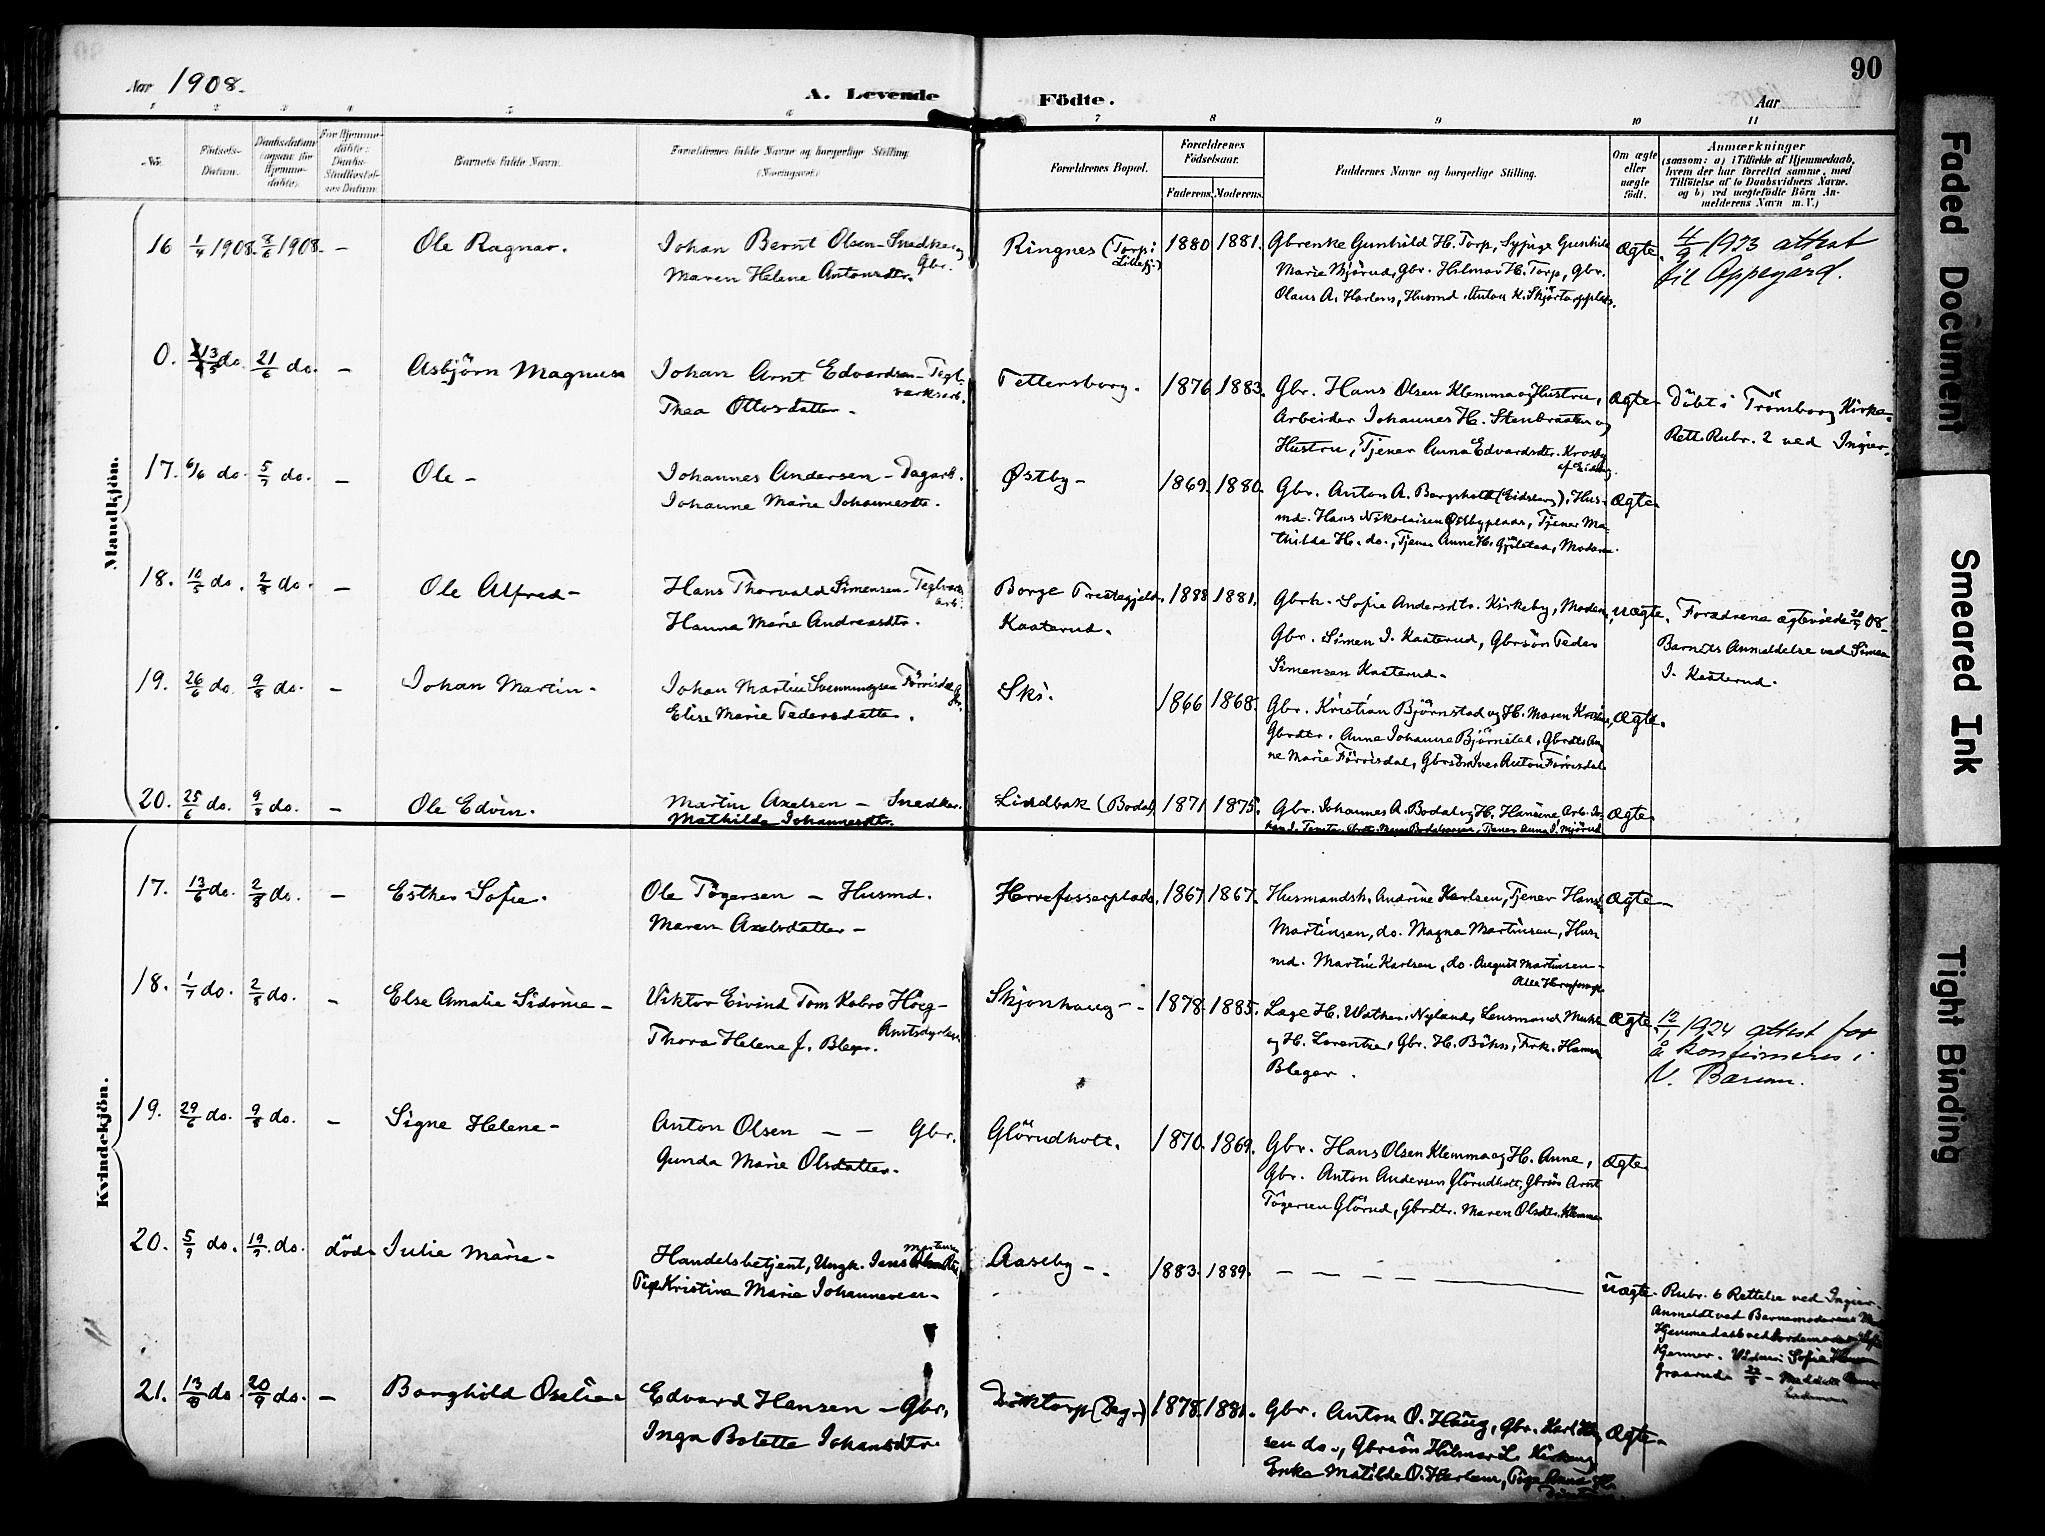 Aar 1908.
A. Levende Födte.
90
Aar
1 2 3 4 5 6 7 8 9 10 11
Nr.
Födsels-Datum.
Daabsdatum (ogsaa for Hjemmedöbte).
For Hjemmedöbte: Daabs-Stadfæstelses Datum.
Barnets fulde Navn.
Forældrenes fulde Navne og borgerlige Stilling (Næringsvei)
Forældrenes Bopæl.
Forældrenes Födselsaar.
Faderens. Moderens.
Faddernes Navne og borgerlige Stilling.
Om ægte eller uægte födt.
Anmærkninger
(saasom: a) i Tilfælde af Hjemmedaab,
hvem der har forrettet samme, med
Tilföielse af to Daabsvidners Navne.
og b) ved uægtefödte Börn An-
melderens Navn m. V.)
Mandkjön.
16 1/4 1908. 8/6 1908. – Ole Ragnar. Johan Bernt Olsen – Snedker og Gbr.
Maren Helene Antonsdtr.
Ringnes (Torp i 1880 1881.
Gbrenke Gunhild H. Torp, Sypige Gunhild
Marie Mjörud, Gbr. Hilmar H. Torp, Gbr.
Olaus A. Harlem, Husmd. Anton K. Skjörtorpplads.
Ægte. 4/9 1923 attest
til Oppegård.
0. 13/5 do. 21/6 do. – Asbjörn Magnus Johan Arnt Edvardsen – Tegl-
værksarb.
Thea Ottersdatter –
Tettersborg. 1876 1883.
Gbr. Hans Olsen Klemma og Hustru,
Arbeider Johannes H. Stenbraaten og
Hustru, Tjener Anna Edvardsdtr. Krosby
af Eidsberg
Ægte. Döbt i Trömborg Kirke.
Rett. Rubr. 2 ved Ingier.
17. 6/6 do. 5/7 do. – Ole – Johannes Andersen – Dagarb.
Johanne Marie Johannesdtr.
Østby – 1869. 1880.
Gbr. Anton A. Bergsholt (Eidsberg), Hus-
md. Hans Nikolaisen Østbyplads, Tjener Ma-
thilde H. do., Tjener Anne H. Gjilstad, Moderen.
Ægte.
18. 10/5 do. 2/8 do. – Ole Alfred – Hans Thorvald Simensen – Teglværks
arb.
Hanna Marie Andreasdtr.
Borge Prestegjeld. 1888 1881.
Kaaterud.
Gbrk. Sofie Andersdtr. Kirkeby, Moderen,
Gbr. Simen I. Kaaterud, Gbrsön Peder
Simensen Kaaterud.
uægte. Forældrene ægteviede 08.
Barnets Anmeldelse ved Simen
I. Kaaterud.
19. 26/6 do. 9/8 do. – Johan Martin – Johan Martin Svenningsen Förrisdal
Gbr.
Elise Marie Pedersdatter.
Ski. 1866 1868.
Gbr. Kristian Björnstad og H. Maren
Gbrdtr. Anne Johanne Björnstad, Gbrdtr. An-
ne Marie Förrisdal, Gbrsön Iver Anton Förrisdal
Ægte.
20. 25/6 do. 9/8 do. – Ole Edvin. Martin Axelsen – Snedker.
Mathilde Johannesdtr.
Lindbak (Bodal) 1871 1875.
Gbr. Johannes A. Bodal og H. Hansine Arb. Jo-
Ægte.
Kvindekjön.
17. 13/6 do. 2/8 do. – Esther Sofie. Ole Tögersen – Husmd.
Maren Axelsdatter –
Herrefosserplads. 1867 1867.
Husmandsk. Andrine Karlsen, Tjener
Martinsen, do. Magna Martinsen, Hus-
md. Martin Karlsen, do. August Martinsen –
Ægte –
18. 1/7 do. 2/8 do. – Else Amalie Sidonie – Viktor Eivind Tom Kobro Höeg –
Amtsdyrlæge
Thora Helene f. Bleger.
Skjønhaug – 1878 1885.
Læge H. Walther Nyland, Lensmand
og H. Lorentze, Gbr. H. Böhss, Frk. Hanna
Bleger.
Ægte. 12/1 1924 attest for
å konfirmeres i
V. Bærum.
19. 29/6 do. 9/8 do. – Signe Helene – Anton Olsen – – Gbr.
Gunda Marie Olsdatter.
Glörudholt. 1870. 1869.
Gbr. Hans Olsen Klemma og H. Anne,
Gbr. Anton Andersen Glörudholt, Gbrsön Arnt
Tögersen Glörud, Gbrdtr. Maren Olsdtr. Klemma
Ægte
20. 5/9 do. 19/9 do. död. Julie Marie – Handelsbetjent, Ungk. Jens
Pige Kristine Marie Johannessen –
Aaseby – 1883. 1889. – – – –
uægte. Rubr. 6 Rettelse ved Ingier.
Anmeldt ved Barnemoderens
Hjemmedaab ved Jordemoder
Kjenner. Vidner: Sofie Hansen
Graarud.
21. 13/8 do. 20/9 do. – Borghild Oselie Edvard Hansen – Gbr.
Inga Bolette Johansdtr.
1878. 1881.
Gbr. Anton O. Haug, Gbr. Karl Han-
sen do., Gbrsön Hilmar L. Kirkeng
Enke Matilde O. Harlem, Pige Anna
Ægte –
Faded Document
Smeared Ink
Tight Binding